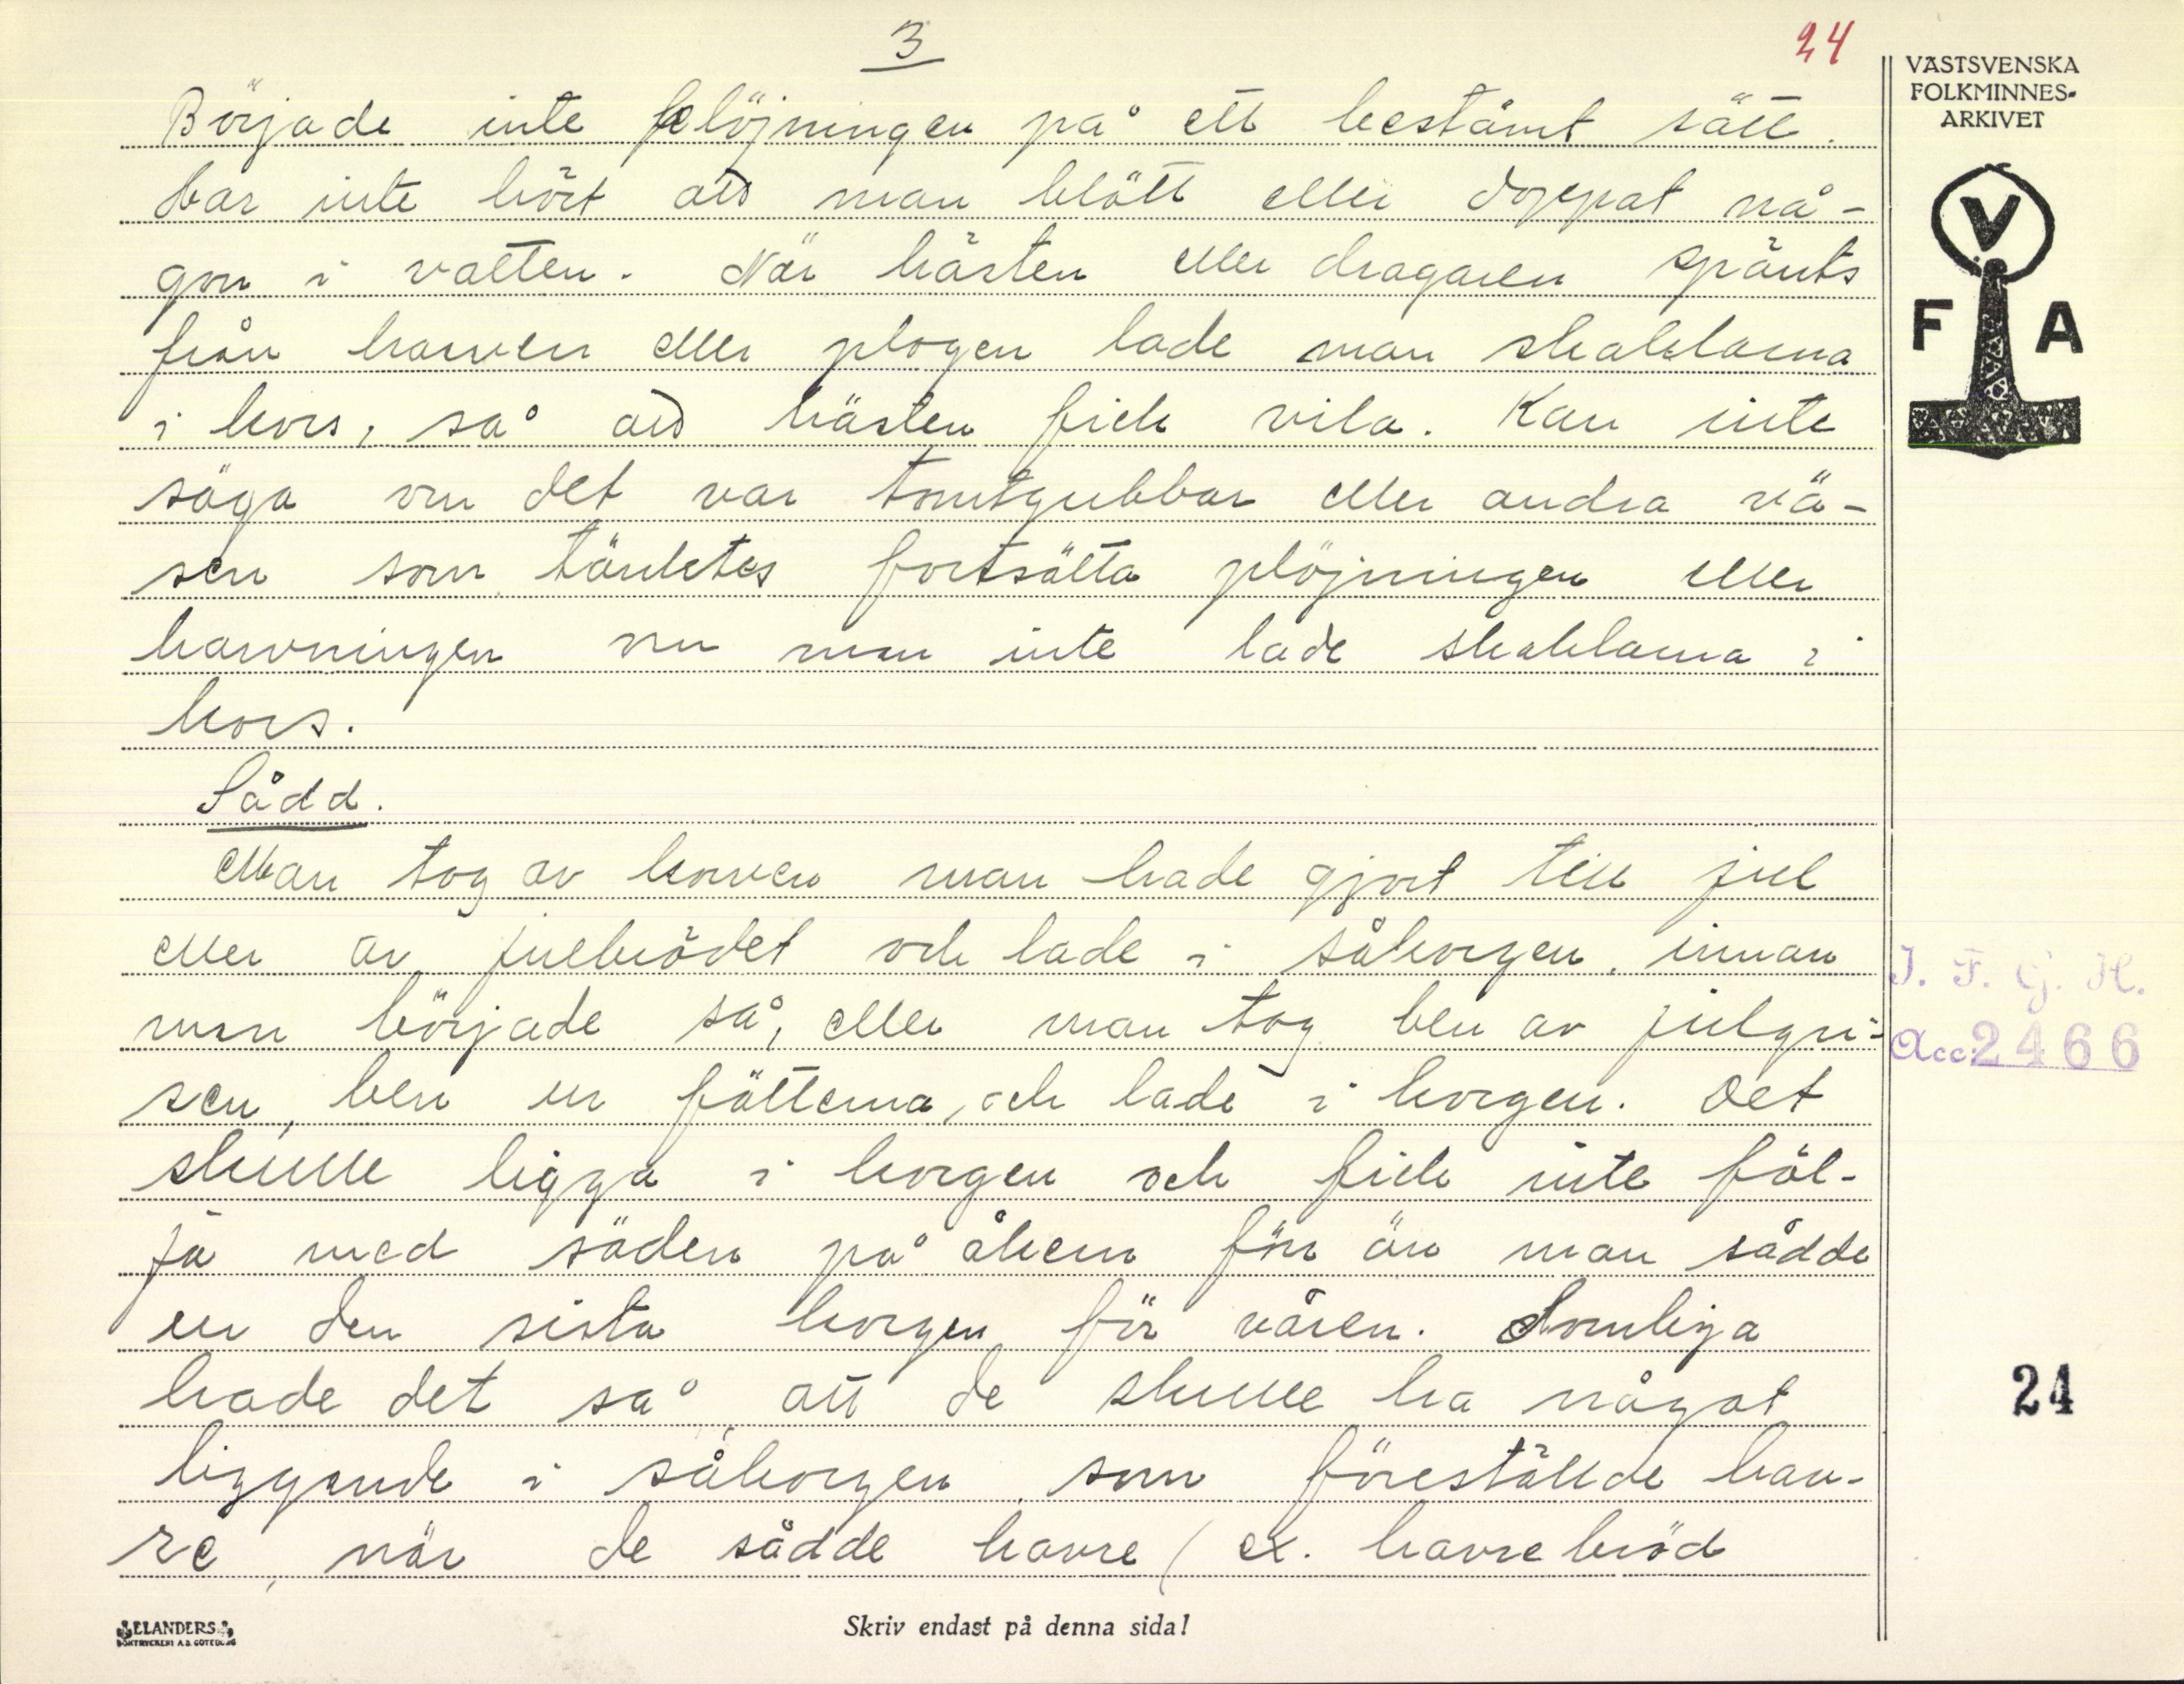 3
24
Började inte plöjningen på ett bestämt sätt.
Har inte hört att man blött eller doppat nå-
gon i vatten. När hästen eller dragaren spänts
från harven eller plogen lade man skaklarna
i kors, så att hästen fick vila. Kan inte
säga om det var tomtgubbar eller andra vä-
sen som tänktes fortsätta plöjningen eller
harvningen om man inte lade skaklarna i
kors.
Sådd.
Man tog av korven man hade gjort till jul
eller av julbrödet och lade i såkorgen, innan
man började så, eller man tog ben av julgri-
sen, ben ur fötterna, och lade i korgen. Det
skulle ligga i korgen och fick inte föl-
ja med säden på åkern förr än man sådde
ur den sista korgen för våren. Somliga
hade det så, att de skulle ha något
liggande i såkorgen, som föreställde hav-
re, när de sådde havre (ex. havrebröd
VÄSTSVENSKA
FOLKMINNES-
ARKIVET
V
F A
I. F. G. H.
Acc. 2466
24
ELANDERS
BOKTRYCKERI A.B. GÖTEBORG
Skriv endast på denna sida!